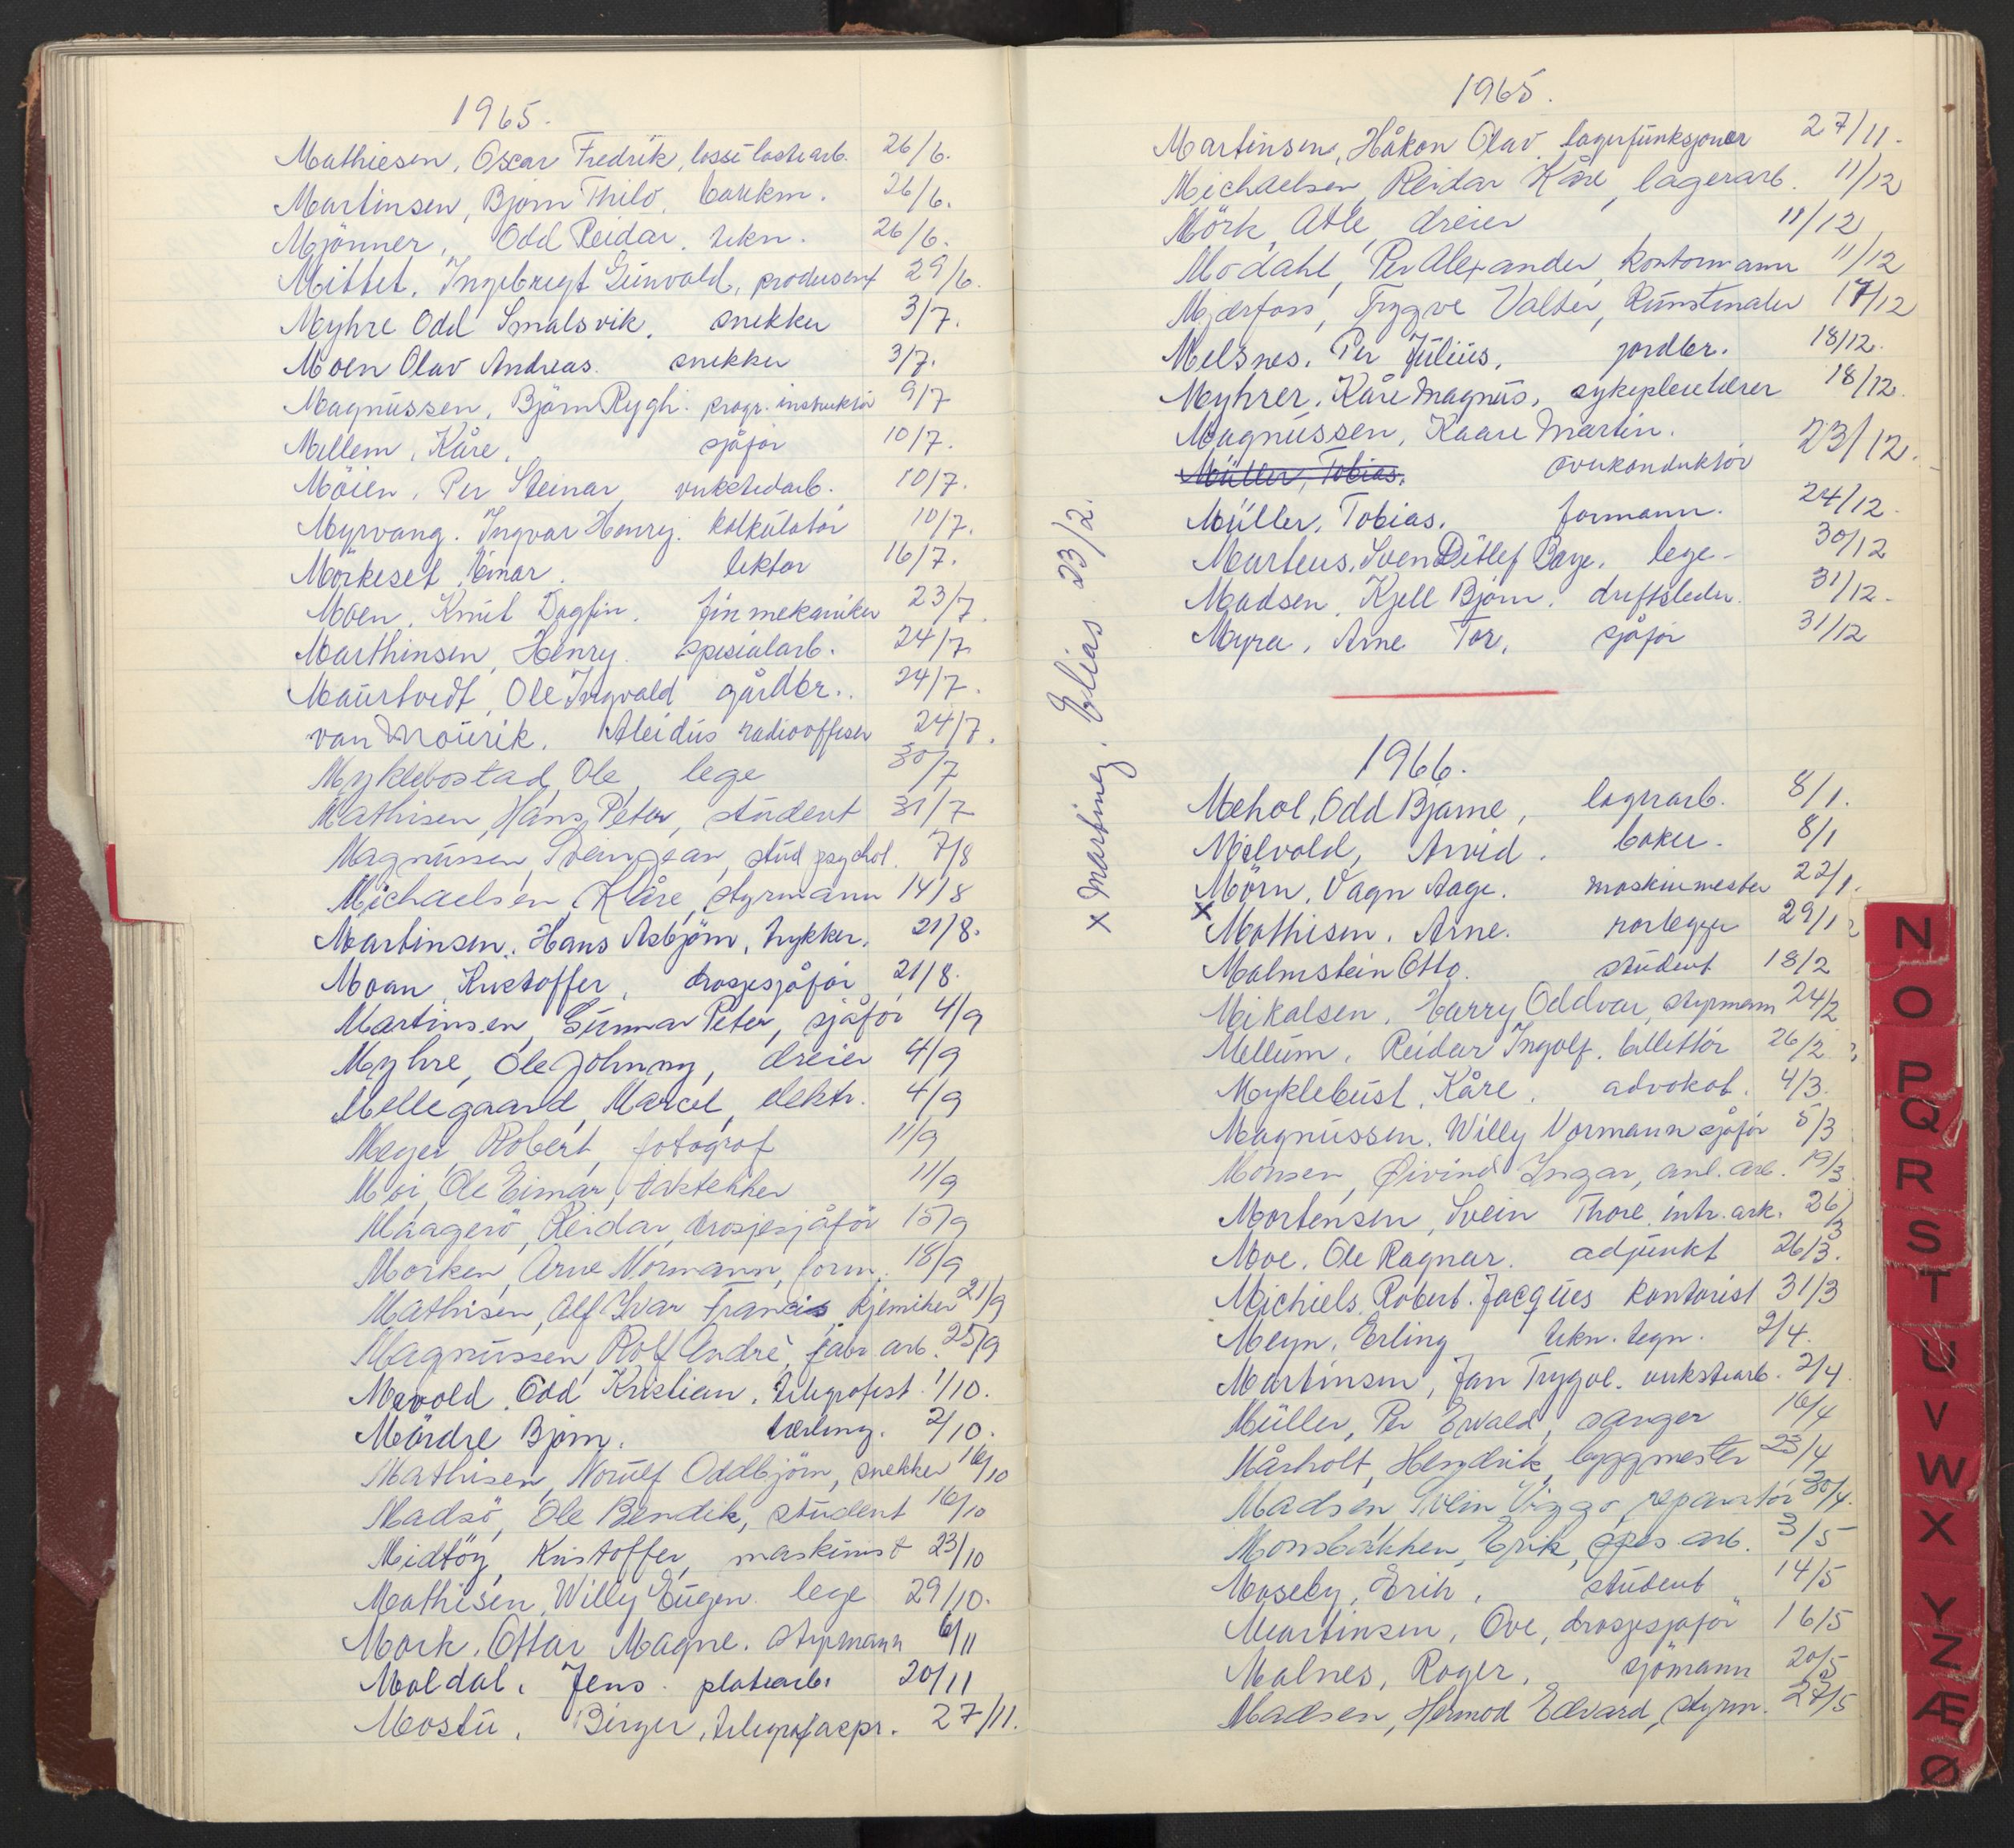 1965.
Mathiesen, Oscar Fredrik, losse lastearb. 26/6.
Martinsen, Bjørn Thilo. bankm. 26/6.
Mjönner, Odd Reidar. tekn. 26/6.
Mittet, Ingebrigt Gunvald, produsent 29/6.
Myhre Odd Smalsvik. snekker 3/7.
Moen Olav Andreas. snekker 3/7.
Magnussen, Björn Rygh. progr. instruktör 9/7
Mellem, Kåre, sjåför 10/7.
Möien, Per Steinar verkstedarb. 10/7.
Myrvang. Ingvar Henry. kalkulatör 10/7.
Mörkeset, Einar. lektor 16/7.
Moen, Knut Dagfin. finmekaniker 23/7.
Marthinsen, Henry. spesialarb. 24/7
Maurtvedt, Ole Ingvald gårdbr. 24/7.
van Mourik, Aleidus radiooffiser 24/7.
Myklebostad, Ole, lege 30/7
Mathisen, Hans Peter, student 31/7
Magnussen, Svein Jean, stud psychol. 7/8
Michaelsen, Kåre, styrmann 14/8
Martinsen, Hans Asbjörn, trykker. 21/8.
Moan, Kristoffer, drosjesjåför 21/8.
Martinsen, Gunnar Peter, sjåför 4/9
Myhre, Ole Johnny, dreier 4/9
Mellegaard, Marcel, elektr. 4/9
Meyer, Robert, fotograf 11/9
Moi, Ole Einar, taktekker 11/9
Maagerö, Reidar, drosjesjåför 15/9
Morken, Arne Normann, form. 18/9
Mathisen, Alf Ivar Francis, kjemiker 21/9
Magnussen, Rolf Andrè, fabr. arb. 25/9
Mevold, Odd Kristian, telegrafist. 1/10.
Mördre Bjørn. lærling. 2/10.
Mathisen, Norulf Oddbjörn, snekker 16/10
Madsö, Ole Bendik, student 16/10
Midtöy, Kristoffer, maskinist 23/10
Mathisen, Willy Eugen. lege 29/10.
Mork, Ottar Magne. styrmann 6/11
Moldal, Jens. platearb. 20/11
Mostu, Birger, telegrafaspr. 27/11.
x Martinez. Elias 23/2.
1965.
Martinsen, Håkon Olav, lagerfunksjonær 27/11.
Michaelsen, Reidar Kåre, lagerarb. 11/12
Mörk, Atle, dreier 11/12
Modahl, Per Alexander, kontormann 11/12
Mjærfoss, Trygve Valter, Kunstmaler 17/12
Melsnes. Per Julius, jordbr. 18/12.
Myhrer, Kåre Magnus, sykepleielærer 18/12.
Magnussen, Kaare Martin.
Müller, Tobias. overkonduktör 23/12.
Müller, Tobias. formann. 24/12.
Martens, Sven Ditlef Baye. lege 30/12
Madsen, Kjell Björn. driftsleder. 31/12.
Myra, Arne Tor, sjåför 31/12
1966.
Mehol, Odd Bjarne, lagerarb. 8/1.
Melvold, Arvid. baker. 8/1
Mörn, Vagn Aage. maskinmester 22/1.
x Mathisen. Arne. rørlegger 29/1
Malmstein Otto. student 18/2
Mikalsen, Harry Oddvar, styrmann 24/2
Mellum, Reidar Ingolf. billettör 26/2
Myklebust, Kåre. advokat. 4/3.
Magnussen, Willy Normann sjåför 5/3
Monsen, Øivind Ingar, anl. arb. 19/3
Mortensen, Svein Thore. intr. ark. 26/3
Moe, Ole Ragnar. adjunkt 26/3.
Michiels Robert. Jacques kontorist 31/3
Meyn, Erling tekn. tegn. 2/4.
Martinsen, Jan Trygve. verkstearb. 2/4
Müller, Per Ewald, sanger 16/4
Mårholt, Hendrik, byggmester 23/4
Madsen, Svein Viggo, reparatör 30/4.
Monsbakken, Erik, spes. arb. 3/5
Moseby, Erik, student 14/5
Martinsen, Ove, drosjesjåför 16/5
Malnes, Roger, sjömann 20/5
Madsen, Hermod Edvard, styrm. 27/5
N
O
P
Q
R
S
T
U
V
W
X
Y
Z
Æ
Ø